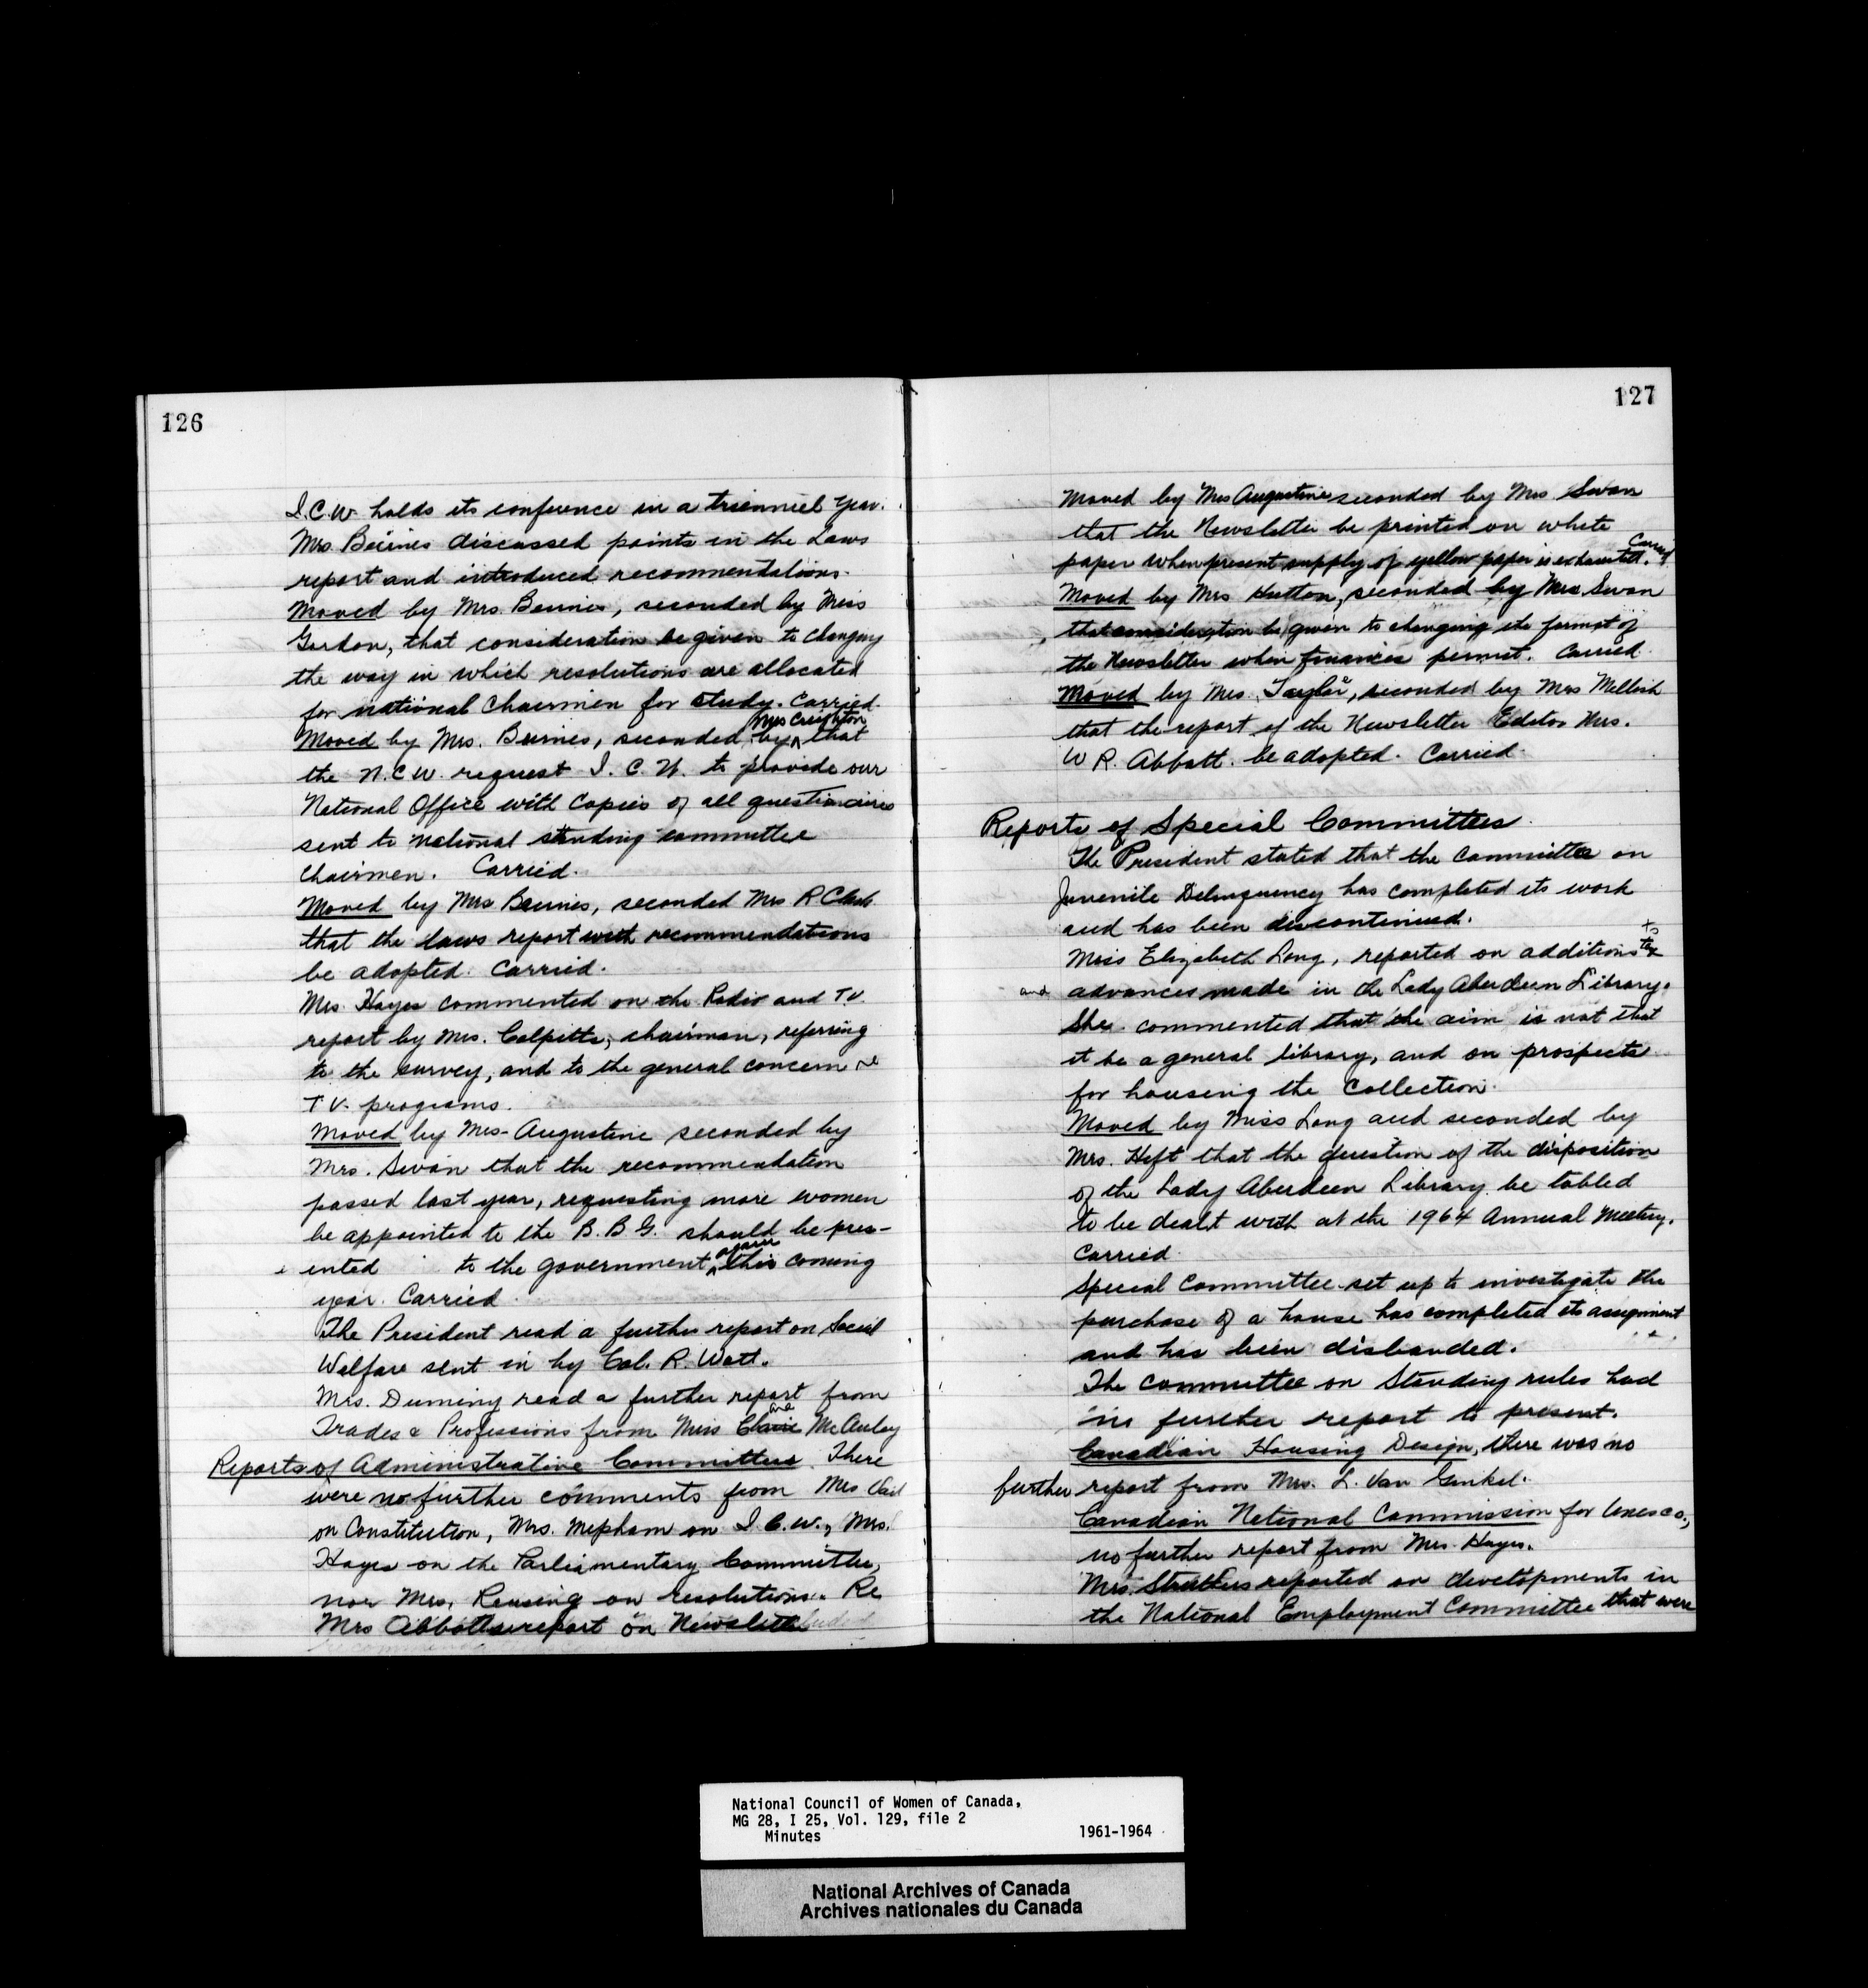 126
I.C.W. holds its conference in a trienniel year.
Mrs. Beirnes discussed points in the Laws
report and introduced recommendations.
Moved by Mrs. Beirnes, seconded by Miss
Gordon, that consideration be given to changing
the way in which resolutions are allocated
for national Chairmen for study. Carried.
Moved by Mrs. Beirnes, seconded by Mrs Creighton that
the N.C.W. request I.C.W. to provide our
National Office with copies of all questionaires
sent to national standing committee
Chairmen. Carried.
Moved by Mrs Beirnes, seconded Mrs R Clark
that the laws report with recommendations
be adopted. Carried.
Mrs. Hayes commented on the Radio and T.V.
report by Mrs. Colpitts, chairman, referring
to the survey, and to the general concern re
T.V. programs.
Moved by Mrs. Augustine seconded by
Mrs. Swan that the recommendation
passed last year, requesting more women
be appointed to the B.B.G. should be pres-
ented to the government again this coming
year. Carried.
The President read a further report on Social
Welfare sent in by Col. R. Watt.
Mrs. Duminy read a further report from
Trades & Professions from Miss McAulay
Reports of Administrative Committees. There
were no further comments from Mrs Vail
on Constitution, Mrs. Mepham on I.C.W., Mrs.
Hayes on the Parliamentary Committee,
nor Mrs. Reusing on resolutions. Re
Mrs Abbotts report on Newsletter
127
Moved by Mrs Augustine seconded by Mrs Swan
that the Newsletter be printed on white
paper when present supply of yellow paper is exhausted. Carried
Moved by Mrs Hutton, seconded by Mrs. Swan
that consideration be given to changing the format of
the Newsletter when finances permit. Carried.
Moved by Mrs. Taylor, seconded by Mrs Mellish
that the report of the Newsletter Editor Mrs.
W R. Abbott. be adopted. Carried.
Reports of Special Committees.
The President stated that the Committee on
Juvenile Delinquency has completed its work
and has been discontinued.
Miss Elizabeth Long, reported on additions to
and advances made in the Lady Aberdeen Library.
She commented that the aim is not that
it be a general library, and on prospects
for housing the Collection.
Moved by Miss Long and seconded by
Mrs. Heft that the question of the disposition
of the Lady Aberdeen Library be tabled
to be dealt with at the 1964 Annual Meeting.
Carried.
Special Committee set up to investigate the
purchase of a house has completed its assignment
and has been disbanded.
The committee on Standing rules had
no further report to present.
Canadian Housing Design, there was no
further report from Mrs. L. Van Ginkel.
Canadian National Commission for Unesco,
no further report from Mrs. Hayes.
Mrs. Struthers reported on developments in
the National Employment Committee that were
National Council of Women of Canada,
MG 28, I 25, Vol. 129, file 2
Minutes 1961-1964
National Archives of Canada
Archives nationales du Canada